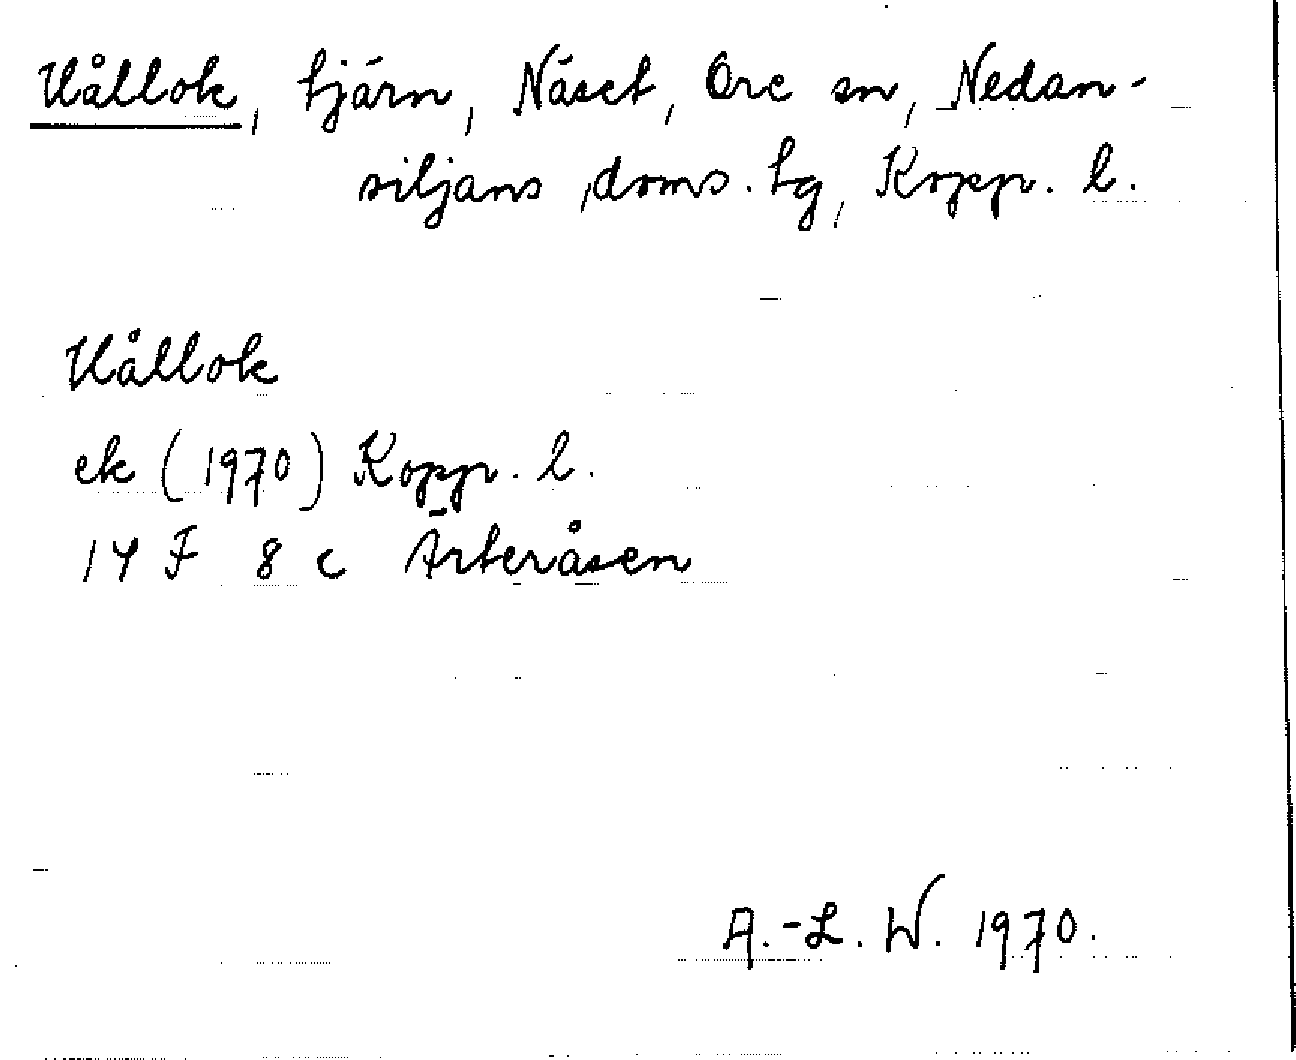 Vållok, tjärn, Näset, Ore sn, Nedan-
siljans doms. tg, Kopp. l.
Vållok
ek (1970) Kopp. l.
14 F 8 c Ärteråsen
A.-L. W. 1970.